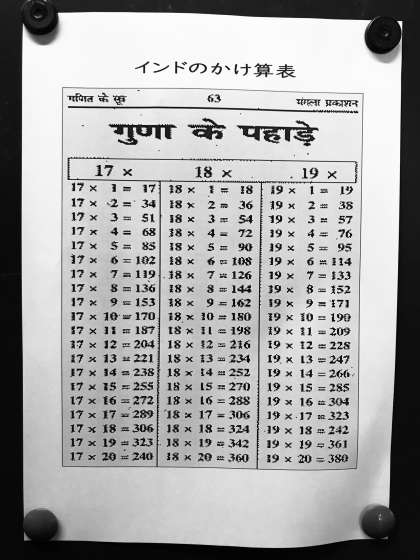 インドのかけ算表
गणित के सूत्र 63 मंगला प्रकाशन
गुणा के पहाड़े
17 × 18 × 19 ×
17 × 1 = 17 18 × 1 = 18 19 × 1 = 19
17 × 2 = 34 18 × 2 = 36 19 × 2 = 38
17 × 3 = 51 18 × 3 = 54 19 × 3 = 57
17 × 4 = 68 18 × 4 = 72 19 × 4 = 76
17 × 5 = 85 18 × 5 = 90 19 × 5 = 95
17 × 6 = 102 18 × 6 = 108 19 × 6 = 114
17 × 7 = 119 18 × 7 = 126 19 × 7 = 133
17 × 8 = 136 18 × 8 = 144 19 × 8 = 152
17 × 9 = 153 18 × 9 = 162 19 × 9 = 171
17 × 10 = 170 18 × 10 = 180 19 × 10 = 190
17 × 11 = 187 18 × 11 = 198 19 × 11 = 209
17 × 12 = 204 18 × 12 = 216 19 × 12 = 228
17 × 13 = 221 18 × 13 = 234 19 × 13 = 247
17 × 14 = 238 18 × 14 = 252 19 × 14 = 266
17 × 15 = 255 18 × 15 = 270 19 × 15 = 285
17 × 16 = 272 18 × 16 = 288 19 × 16 = 304
17 × 17 = 289 18 × 17 = 306 19 × 17 = 323
17 × 18 = 306 18 × 18 = 324 19 × 18 = 242
17 × 19 = 323 18 × 19 = 342 19 × 19 = 361
17 × 20 = 240 18 × 20 = 360 19 × 20 = 380